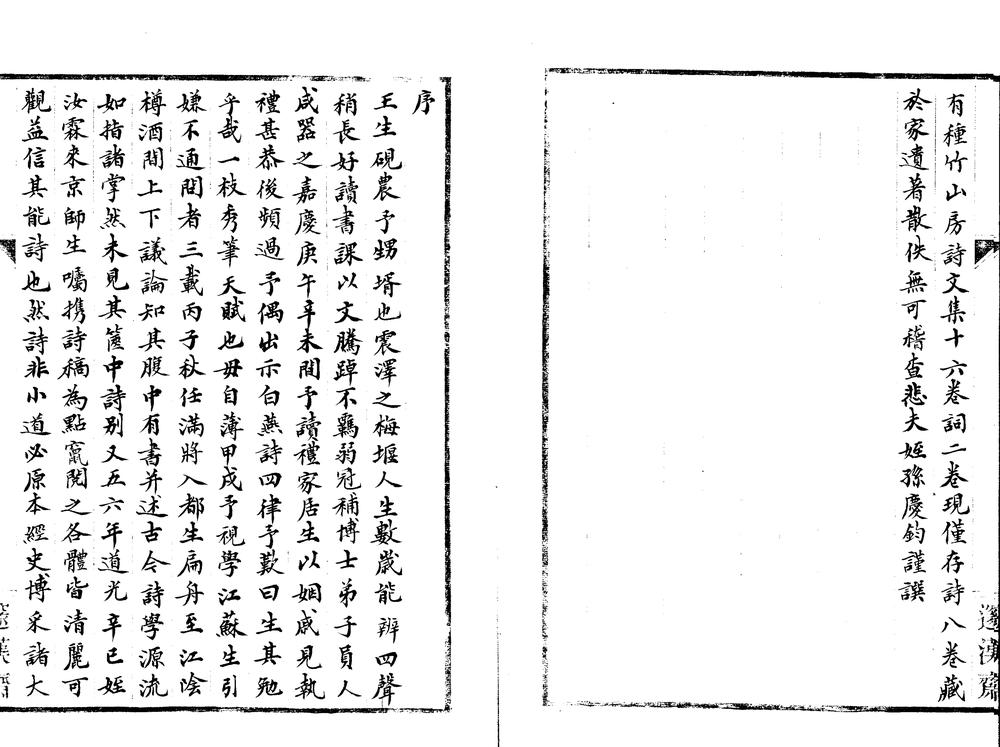 有種竹山房詩文集十六卷詞二卷現僅存詩八卷藏
於家遺著散佚無可稽查悲夫姪孫慶鈞謹譔
邃漢齋
序
王生硯農予甥壻也震澤之梅堰人生數歲能辨四聲
稍長好讀書課以文騰踔不羈弱冠補博士弟子員人
咸器之嘉慶庚午辛未間予讀禮家居生以姻戚見執
禮甚恭後頻過予偶出示白燕詩四律予歎曰生其勉
乎哉一枝秀筆天賦也毋自薄甲戌予視學江蘇生引
嫌不通問者三載丙子秋任滿將入都生扁舟至江陰
樽酒間上下議論知其腹中有書并述古今詩學源流
如指諸掌然未見其篋中詩別又五六年道光辛巳姪
汝霖來京師生囑携詩稿為點竄閱之各體皆清麗可
觀益信其能詩也然詩非小道必原本經史博采諸大